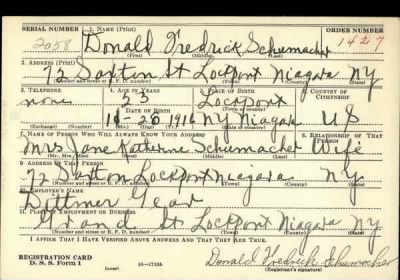 SERIAL NUMBER 1. NAME (Print) ORDER NUMBER
2058 Donald Fredrick Schumacher 1427
(First) (Middle) (Last)
2. ADDRESS (Print)
72 Saxton St Lockport Niagara NY
(Number and street or R. F. D. number) (Town) (County) (State)
3. TELEPHONE 4. AGE IN YEARS 5. PLACE OF BIRTH 6. COUNTRY OF CITIZENSHIP
none 23 Lockport
DATE OF BIRTH (Town or county)
1916 NY Niagara U S
(Exchange) (Number) (Mo.) (Day) (Yr.) (State or country)
7. NAME OF PERSON WHO WILL ALWAYS KNOW YOUR ADDRESS 8. RELATIONSHIP OF THAT PERSON
Mrs Jane Katherine Schumacher Wife
(Mr., Mrs., Miss) (First) (Middle) (Last)
9. ADDRESS OF THAT PERSON
72 Saxton Lockport Niagara NY.
(Number and street or R. F. D. number) (Town) (County) (State)
10. EMPLOYER'S NAME
Dittmer Gear
11. PLACE OF EMPLOYMENT OR BUSINESS
Grand St Lockport Niagara NY
(Number and street or R. F. D. number) (Town) (County) (State)
I AFFIRM THAT I HAVE VERIFIED ABOVE ANSWERS AND THAT THEY ARE TRUE.
REGISTRATION CARD
D. S. S. Form 1 (over) 16—17105 Donald Fredrick Schumacher
(Registrant's signature)